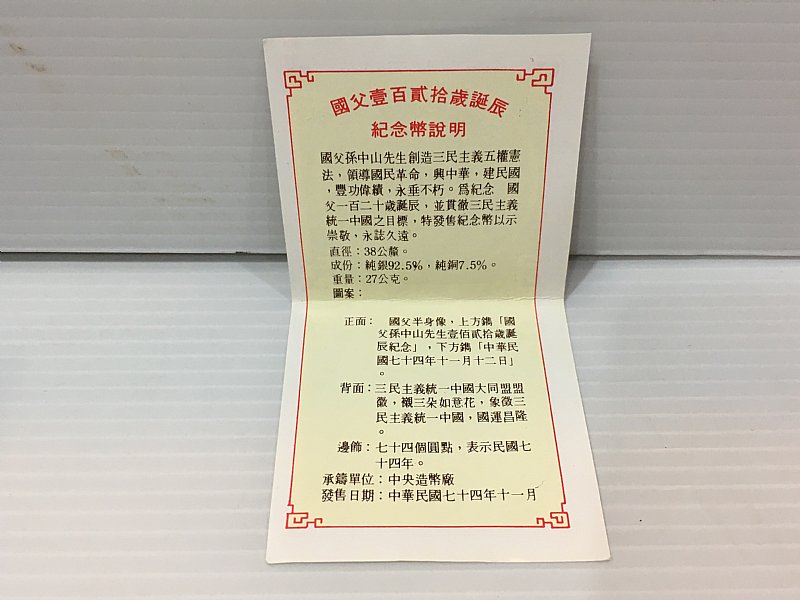 國父壹百貳拾歲誕辰
紀念幣說明
國父孫中山先生創造三民主義五權憲
法，領導國民革命，興中華，建民國
，豐功偉績，永垂不朽。爲紀念　國
父一百二十歲誕辰，並貫徹三民主義
統一中國之目標，特發售紀念幣以示
崇敬，永誌久遠。
直徑：38公釐。
成份：純銀92.5%，純銅7.5%。
重量：27公克。
圖案：
正面：　國父半身像，上方鐫「國
父孫中山先生壹佰貳拾歲誕
辰紀念」，下方鐫「中華民
國七十四年十一月十二日」
。
背面：三民主義統一中國大同盟盟
徽，襯三朵如意花，象徵三
民主義統一中國，國運昌隆
。
邊飾：七十四個圓點，表示民國七
十四年。
承鑄單位：中央造幣廠
發售日期：中華民國七十四年十一月